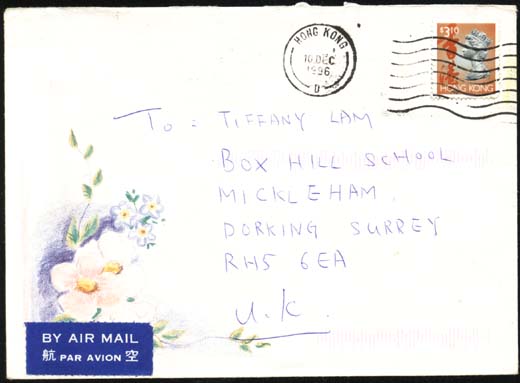 HONG KONG
10 DEC
1996
D
$3.10
HONG KONG
To : TIFFANY LAM
BOX HILL SCHOOL
MICKLEHAM,
DORKING SURREY
RH5 6EA
U.K.
BY AIR MAIL
航 PAR AVION 空